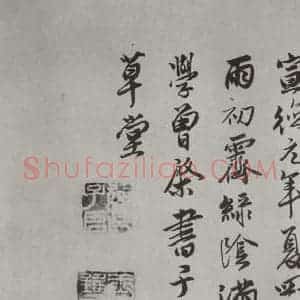 宣德元年夏四
雨初霽綠陰滿
學曾棨書于
草堂
Shufaziliao.COM